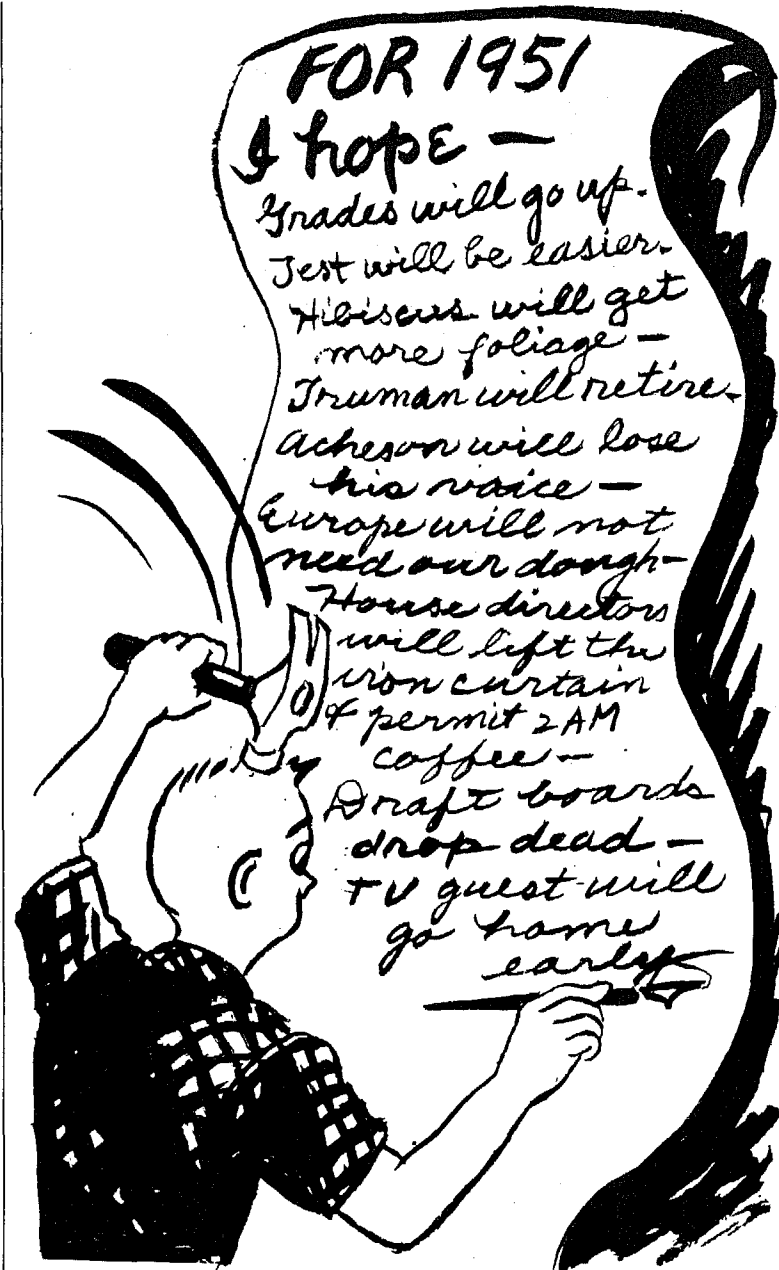 FOR 1951
I hope —
Grades will go up.
Test will be easier.
Hibiscus will get
more foliage —
Truman will retire.
Acheson will lose
his voice —
Europe will not
need our dough—
House directors
will lift the
iron curtain
& permit 2 AM
coffee —
Draft boards
drop dead —
TV guest will
go home
early